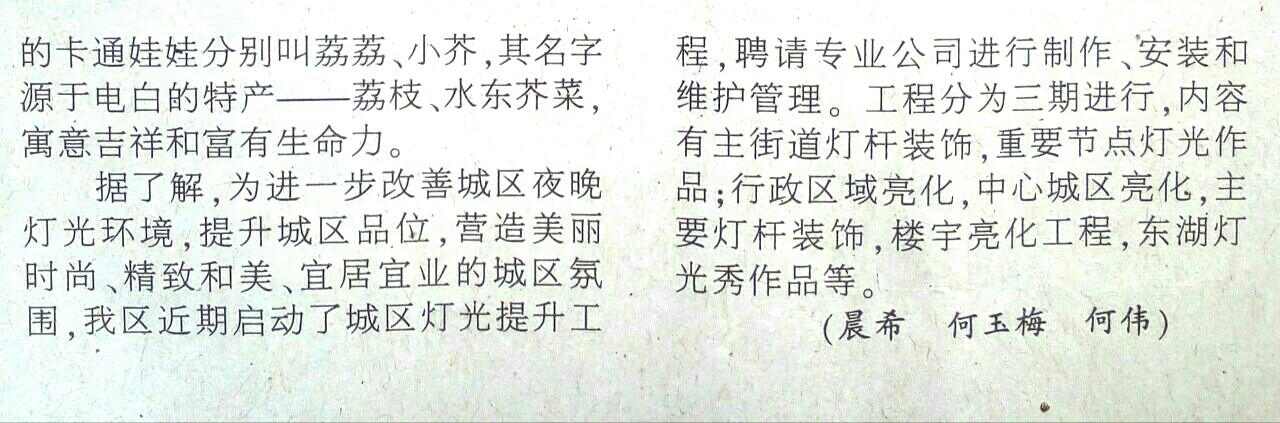 的卡通娃娃分别叫荔荔、小芥,其名字
源于电白的特产——荔枝、水东芥菜,
寓意吉祥和富有生命力。
据了解,为进一步改善城区夜晚
灯光环境,提升城区品位,营造美丽
时尚、精致和美、宜居宜业的城区氛
围,我区近期启动了城区灯光提升工
程,聘请专业公司进行制作、安装和
维护管理。工程分为三期进行,内容
有主街道灯杆装饰,重要节点灯光作
品;行政区域亮化,中心城区亮化,主
要灯杆装饰,楼宇亮化工程,东湖灯
光秀作品等。
(晨希 何玉梅 何伟)